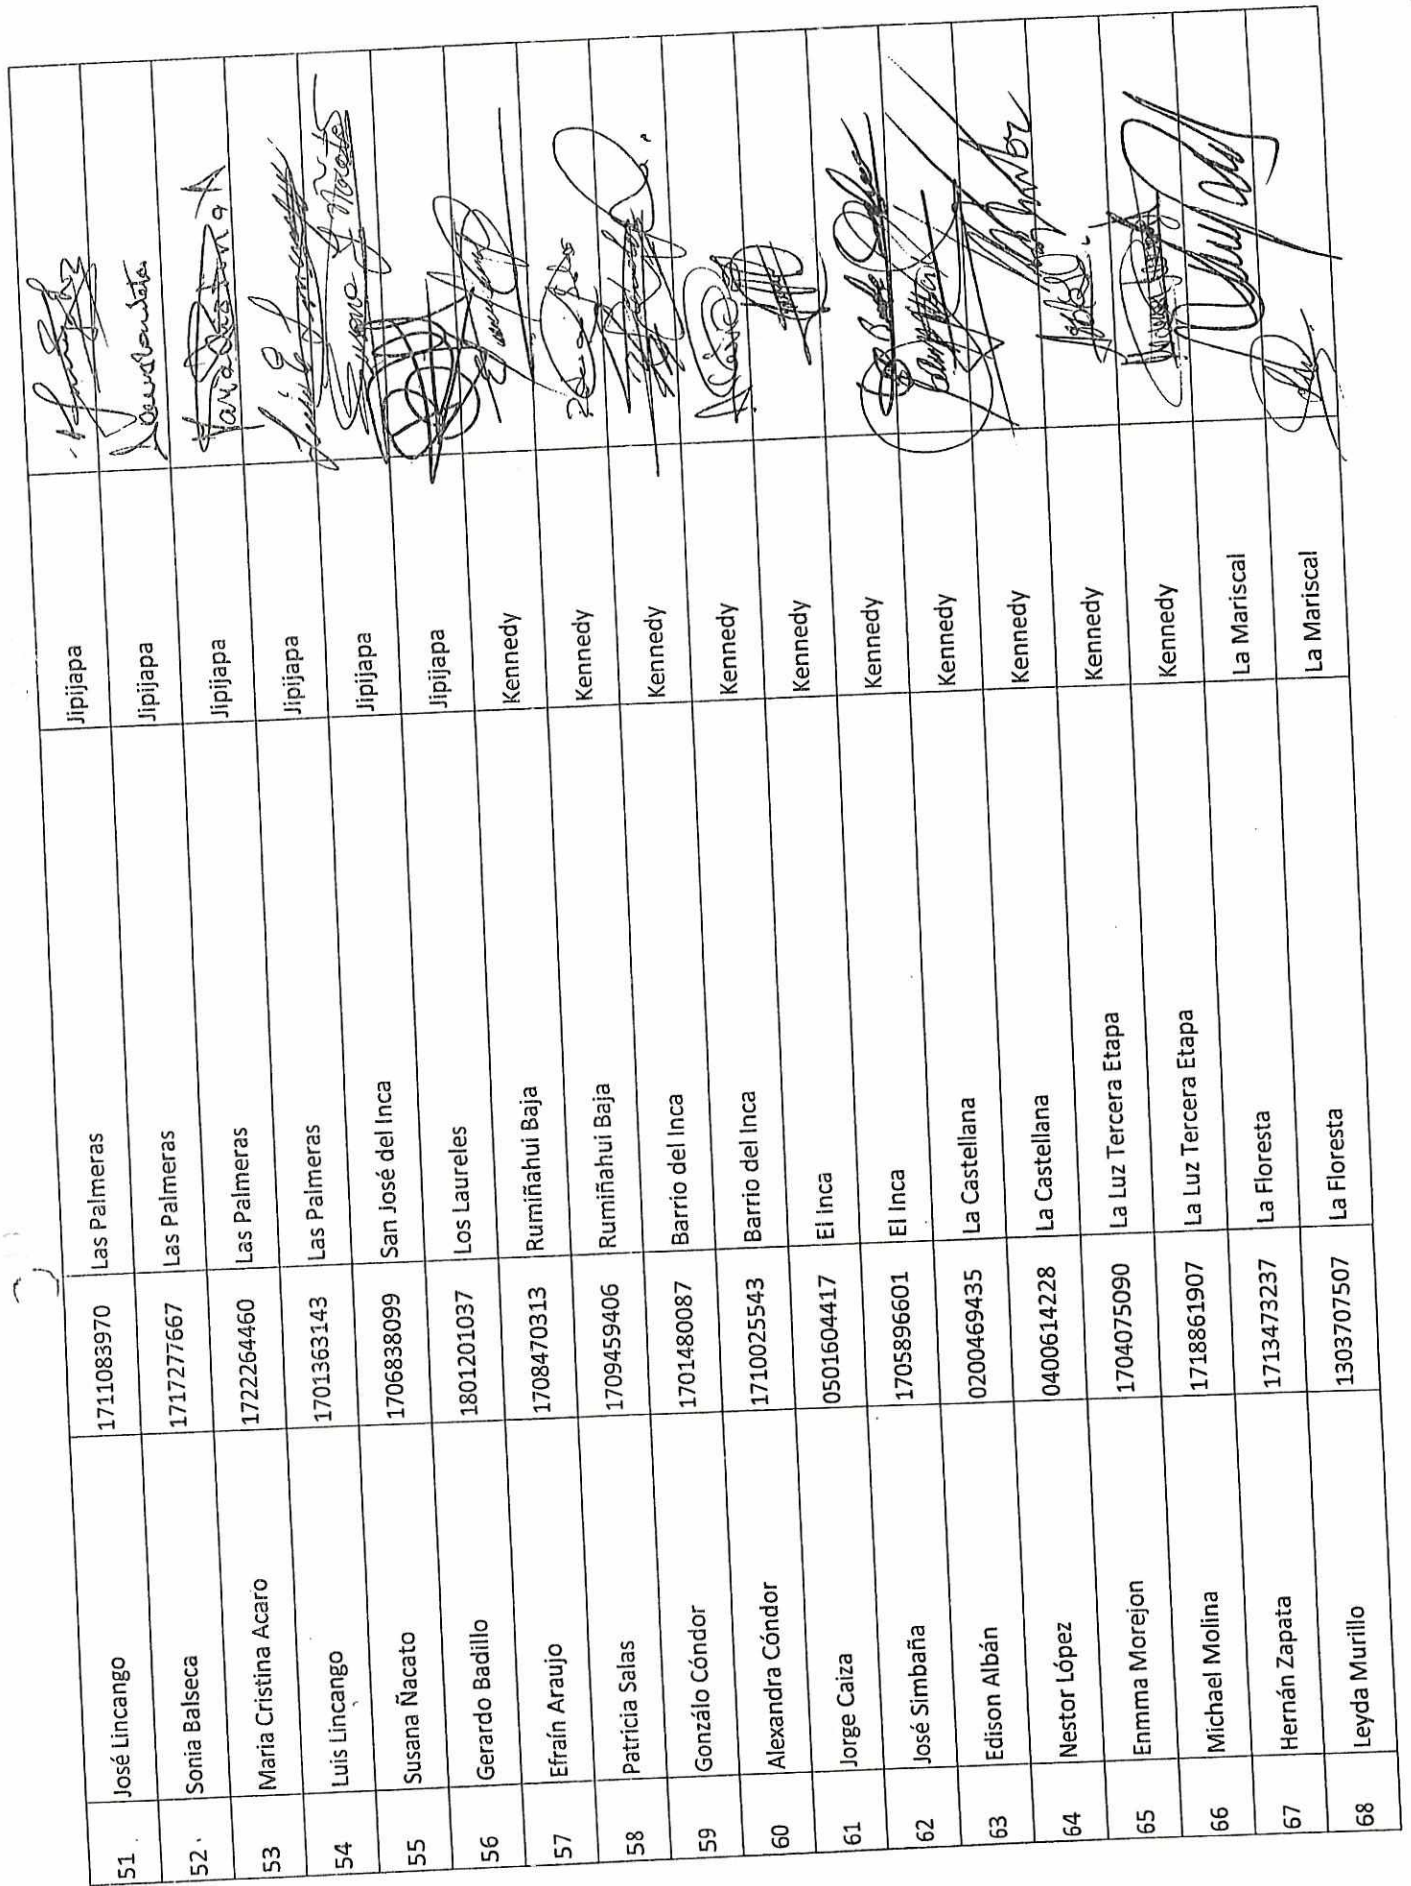 51 José Lincango 1711083970 Las Palmeras Jipijapa
52 Sonia Balseca 1717277667 Las Palmeras Jipijapa
53 Maria Cristina Acaro 1722264460 Las Palmeras Jipijapa
54 Luis Lincango 1701363143 Las Palmeras Jipijapa
55 Susana Ñacato 1706838099 San José del Inca Jipijapa
56 Gerardo Badillo 1801201037 Los Laureles Jipijapa
57 Efraín Araujo 1708470313 Rumiñahui Baja Kennedy
58 Patricia Salas 1709459406 Rumiñahui Baja Kennedy
59 Gonzálo Cóndor 1701480087 Barrio del Inca Kennedy
60 Alexandra Cóndor 1710025543 Barrio del Inca Kennedy
61 Jorge Caiza 0501604417 El Inca Kennedy
62 José Simbaña 1705896601 El Inca Kennedy
63 Edison Albán 0200469435 La Castellana Kennedy
64 Nestor López 0400614228 La Castellana Kennedy
65 Enmma Morejon 1704075090 La Luz Tercera Etapa Kennedy
66 Michael Molina 1718861907 La Luz Tercera Etapa Kennedy
67 Hernán Zapata 1713473237 La Floresta La Mariscal
68 Leyda Murillo 1303707507 La Floresta La Mariscal